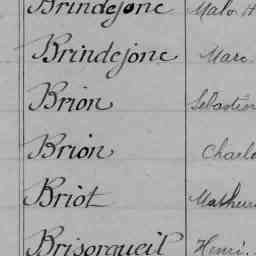 Brindejonc Malo H
Brindejonc Marc
Brion Sébastien
Brion Charle
Briot Mathuri
Brisorgueil Henri.